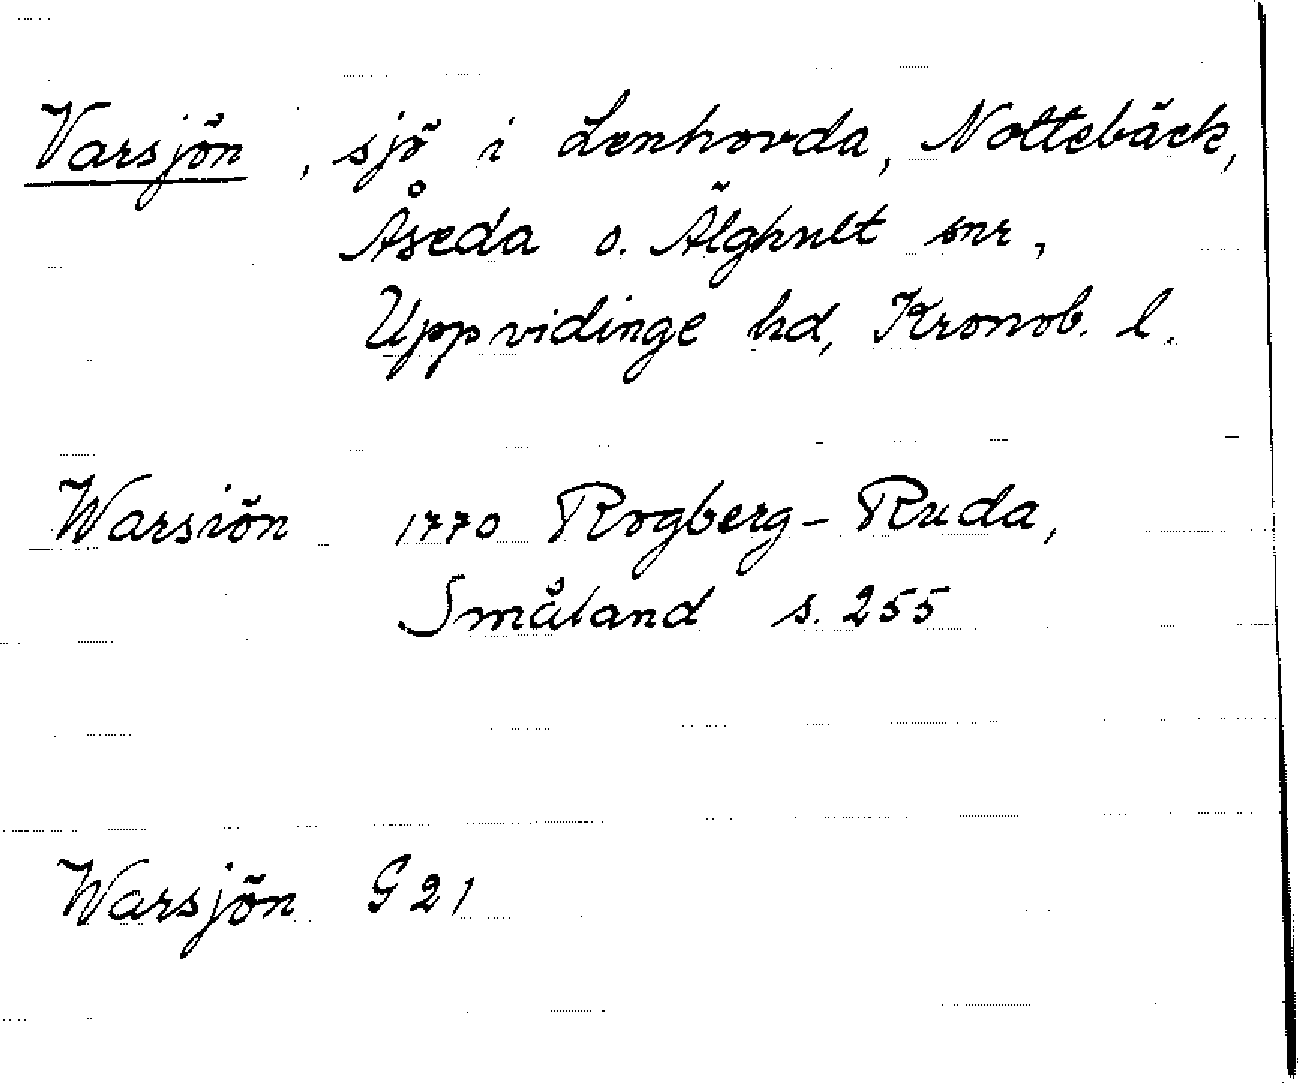 Varsjön, sjö i Lenhovda, Nottebäck,
Åseda o. Älghult snr,
Uppvidinge hd, Kronob. l.
Warsiön 1770 Rogberg-Ruda,
Småland s. 255
Warsjön G21